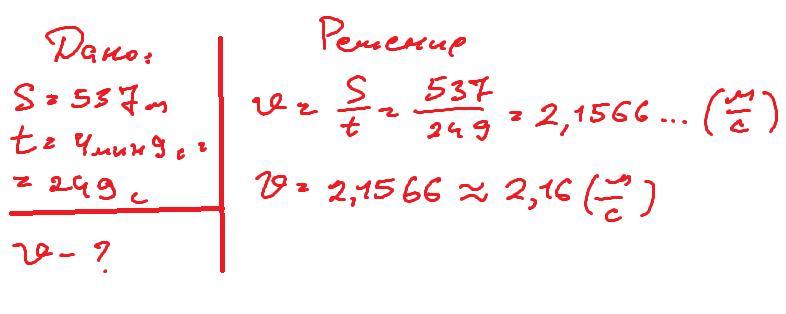 Дано:
S = 537 м
t = 4 мин 9 с =
= 249 с
v - ?
Решение
v = S/t = 537/249 = 2,1566... (м/с)
v = 2,1566 ≈ 2,16 (м/с)